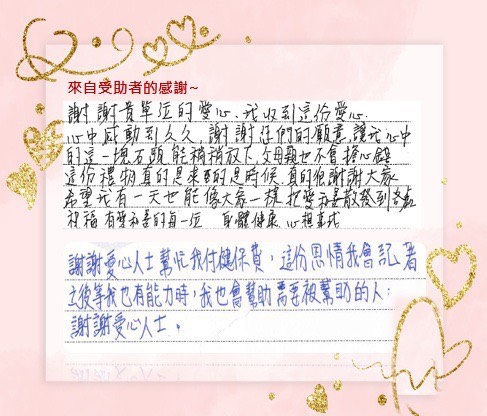 來自受助者的感謝~
謝謝貴單位的愛心,我收到這份愛心.
心中感動到久久,謝謝您們的願意,讓我心中
的這一塊石頭能稍稍放下,父母親也不會擔心錢
這份禮物真的是來的是時候,真的很謝謝大家
希望我有一天也能像大家一樣,把愛和善散發到各處
祝福有愛和善的每一位 身體健康 心想事成
謝謝愛心人士幫忙我付健保費,這份恩情我會記著
立後等我也有能力時,我也會幫助需要被幫助的人.
謝謝愛心人士.